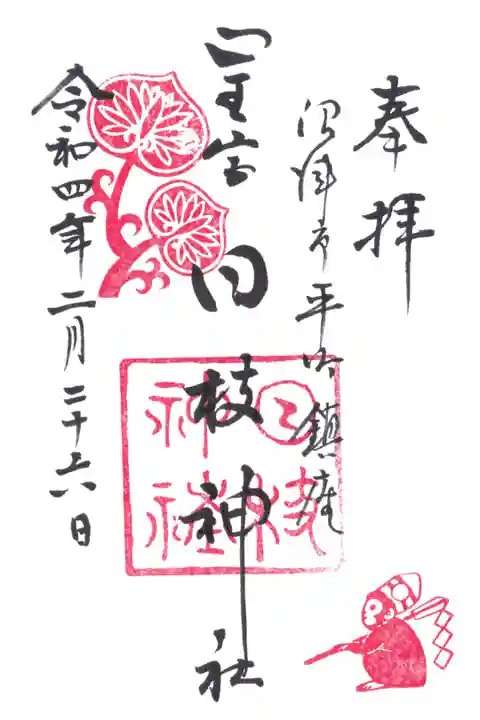 奉拝
沼津市平町鎮座
山王宮日枝神社
令和四年二月二十六日
日枝
神社